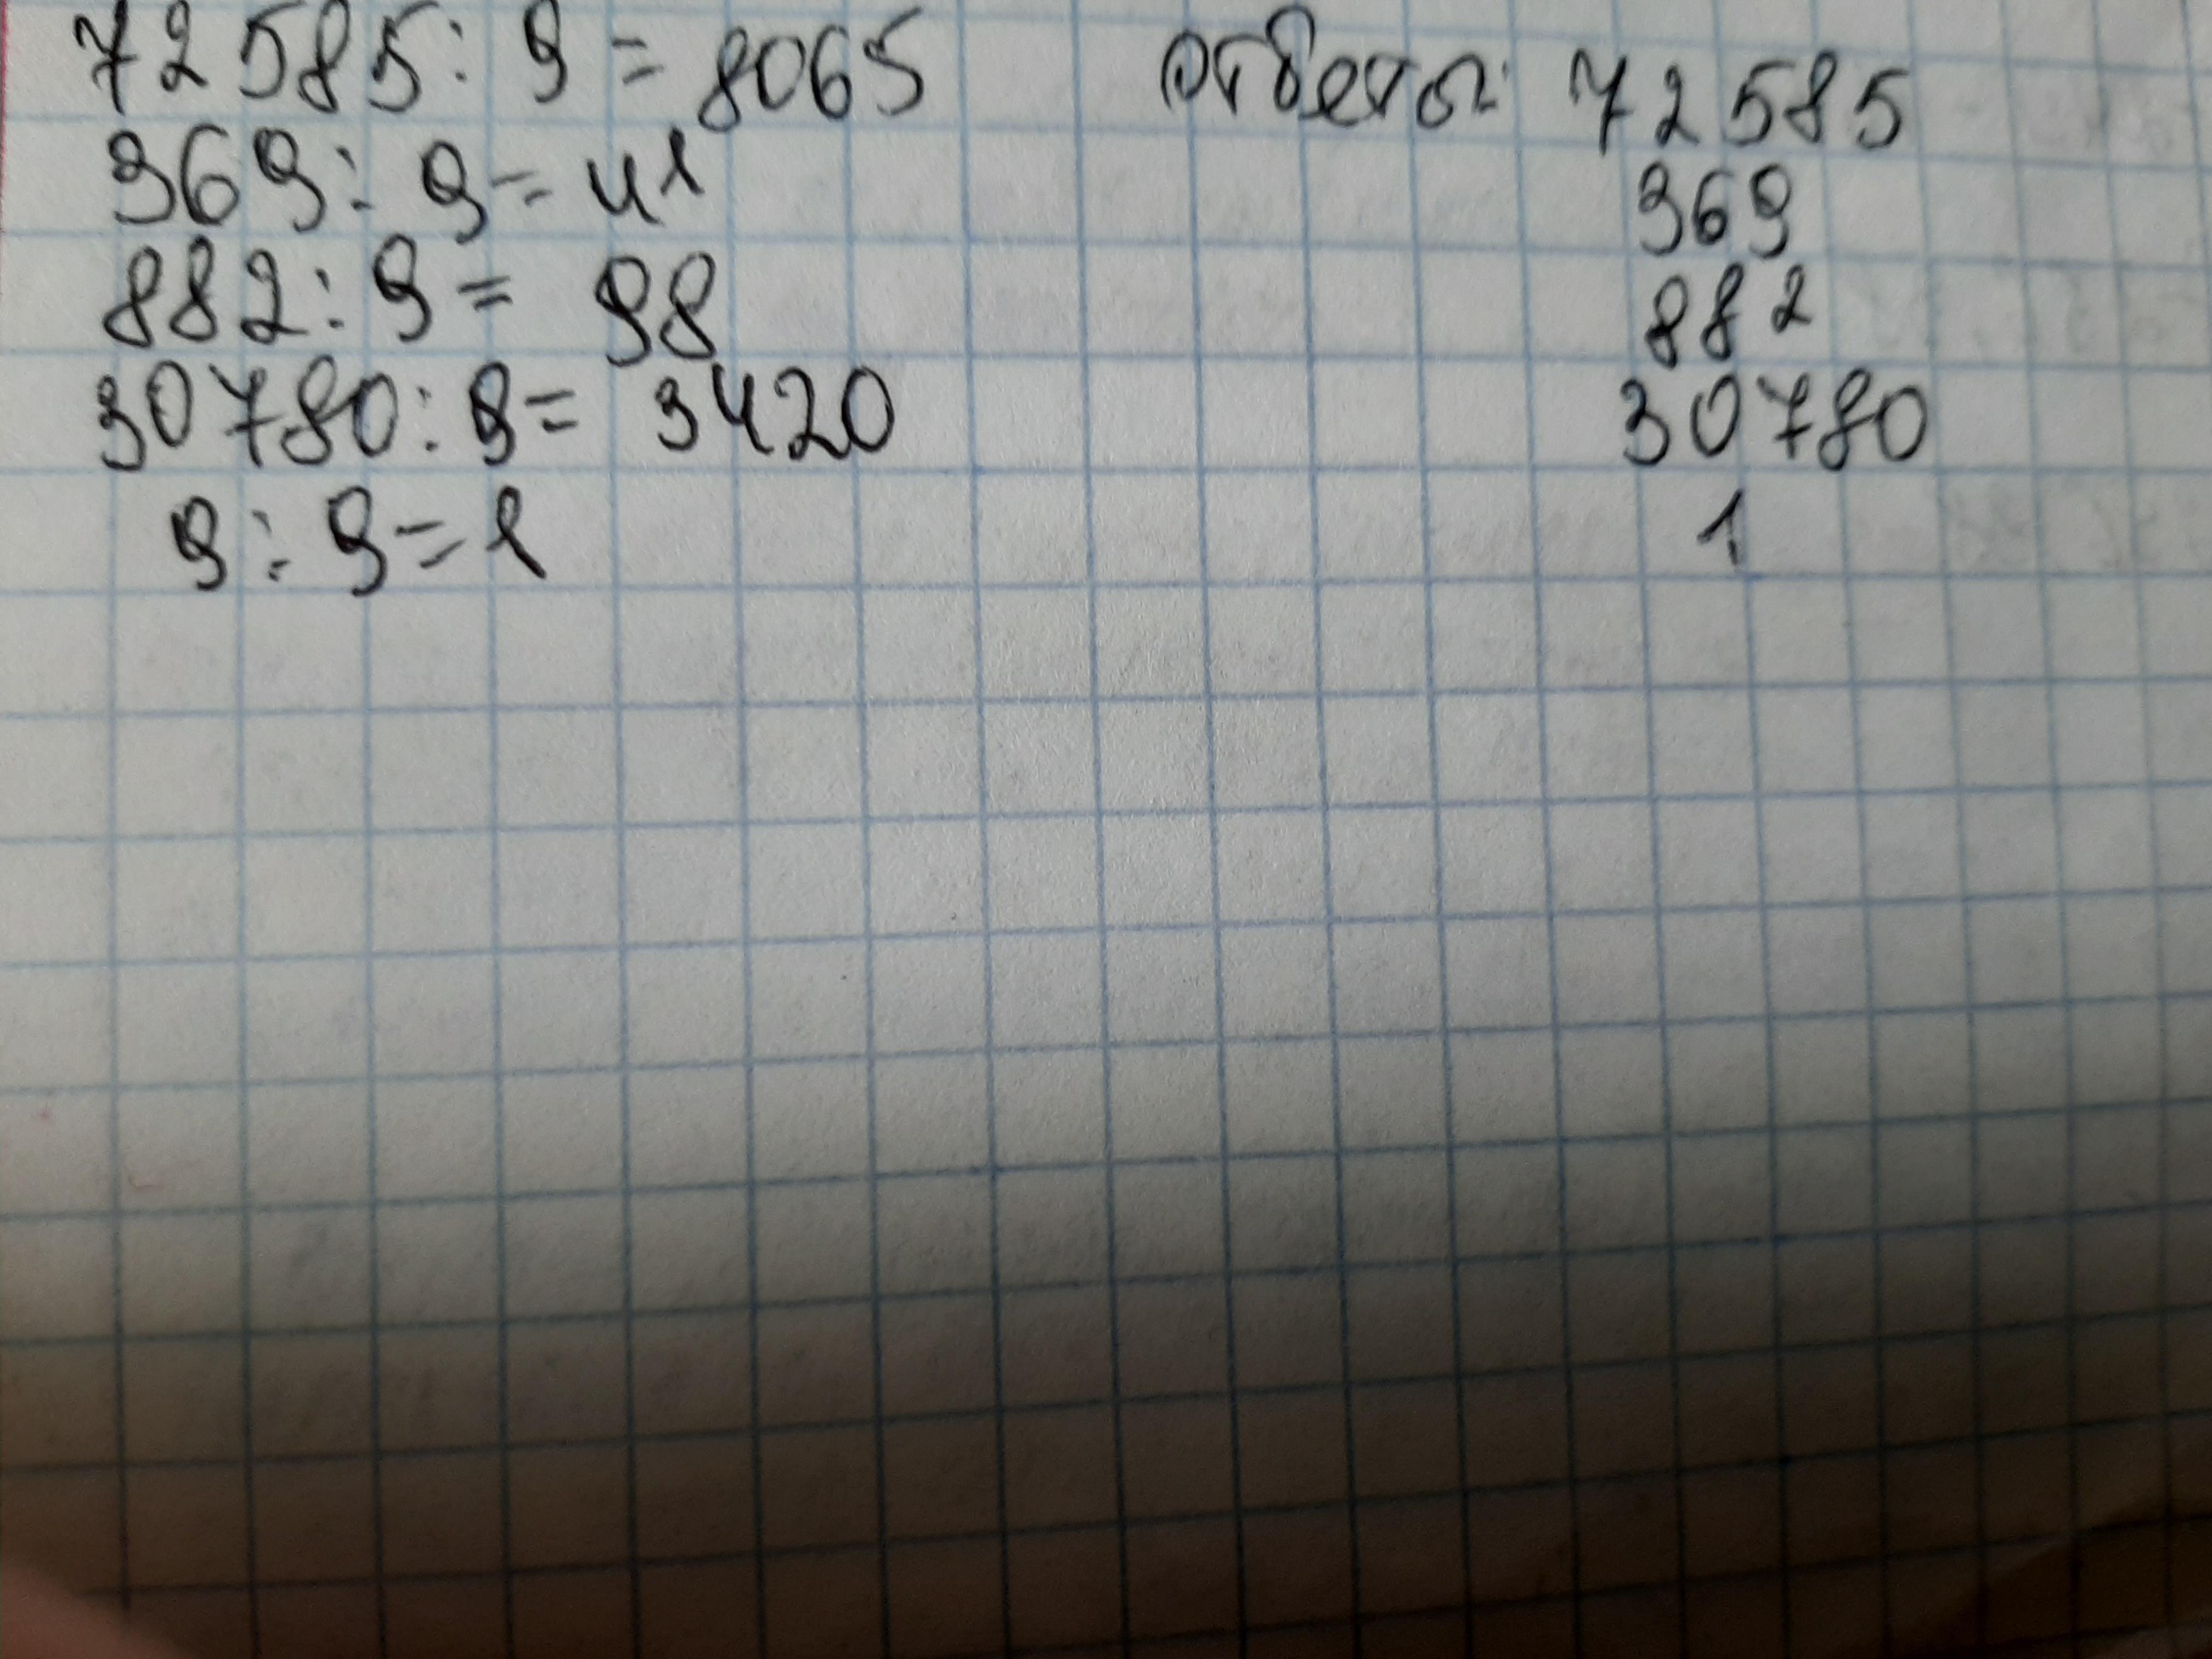 72585 : 9 = 8065 ответы: 72585
369 : 9 = 41 369
882 : 9 = 98 882
30780 : 9 = 3420 30780
9 : 9 = 1 1